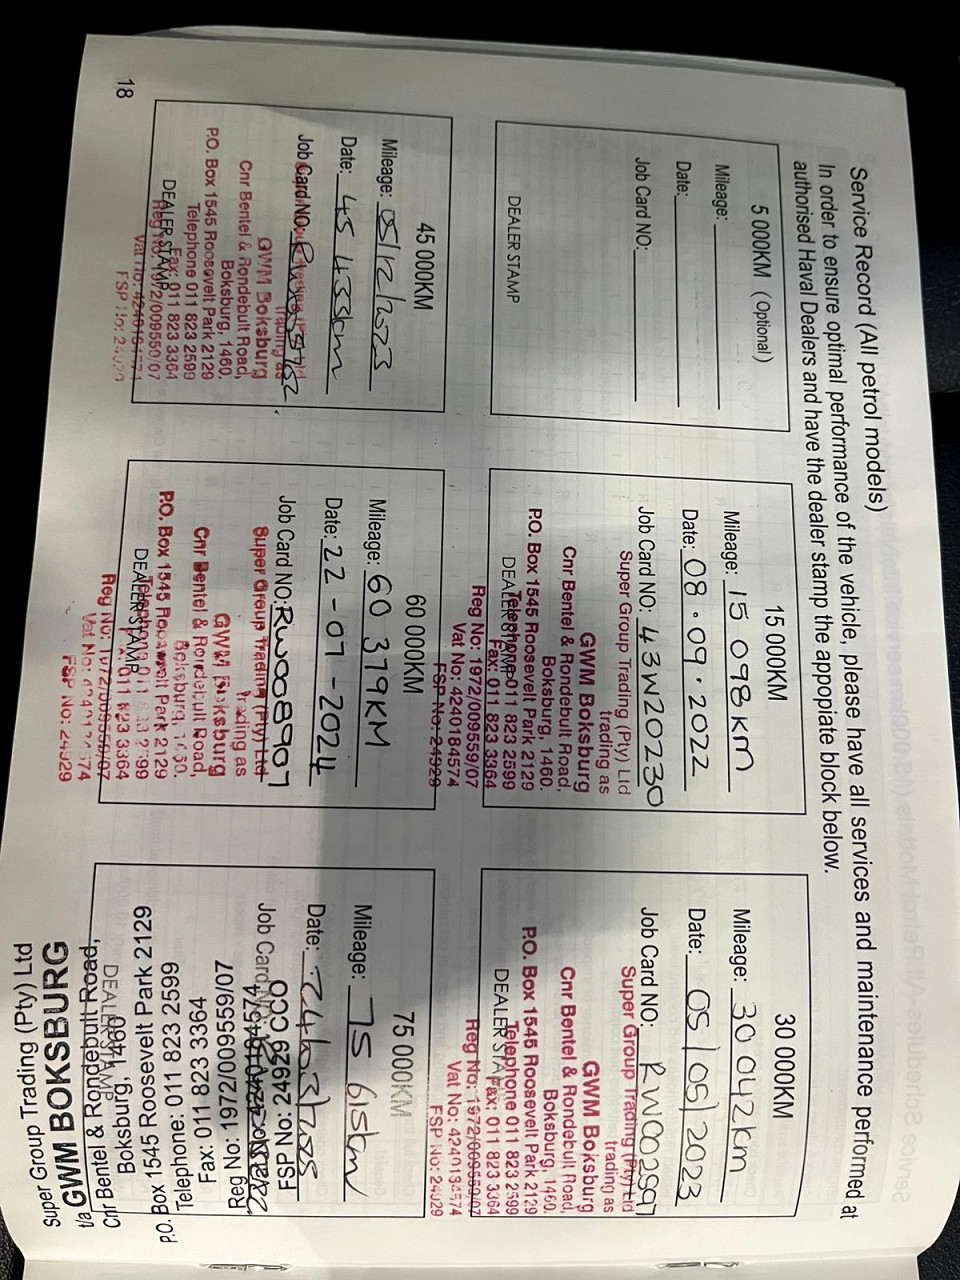 Service Record (All petrol models)
In order to ensure optimal performance of the vehicle, please have all services and maintenance performed at
authorised Haval Dealers and have the dealer stamp the appopiate block below.
5 000KM (Optional)
Mileage:
Date:
Job Card NO:
DEALER STAMP
15 000KM
Mileage: 15 098KM
Date: 08.09.2022
Job Card NO: 43W20230
Super Group Trading (Pty) Ltd
trading as
GWM Boksburg
Cnr Bentel & Rondebult Road,
Boksburg, 1460.
P.O. Box 1545 Roosevelt Park 2129
Telephone 011 823 2599
DEALER STAMP
Fax: 011 823 3364
Reg No: 1972/009559/07
Vat No: 4240184574
FSP No: 24929
30 000KM
Mileage: 30 042Km
Date: 05/05/2023
Job Card NO:
Super Group Trading (Pty) Ltd
trading as
GWM Boksburg
Cnr Bentel & Rondebult Road,
Boksburg, 1460.
P.O. Box 1545 Roosevelt Park 2129
Telephone 011 823 2599
DEALER STAMP
Fax: 011 823 3364
Reg No: 1972/009559/07
Vat No: 4240184574
FSP No: 24929
45 000KM
Mileage: 05/12/2023
Date: 45 433km
Job Card NO:
trading as
GWM Boksburg
Cnr Bentel & Rondebult Road,
Boksburg, 1460.
P.O. Box 1545 Roosevelt Park 2129
Telephone 011 823 2599
DEALER STAMP
Fax: 011 823 3364
Reg No: 1972/009559/07
Vat No:
FSP No:
60 000KM
Mileage: 60 379KM
Date: 22-07-2024
Job Card NO: RW008907
Super Group Trading (Pty) Ltd
Trading as
GWM Boksburg
Cnr Bentel & Rondebult Road,
Boksburg, 1460.
P.O. Box 1545 Roosevelt Park 2129
Telephone 011 823 2599
DEALER STAMP
011 823 3364
Reg No: 1972/009559/07
Vat No:
FSP No: 24929
75 000KM
Mileage: 75 615km
Date: 24/03/2025
Job Card NO:
FSP No: 24929
Reg No: 1972/009559/07
Fax: 011 823 3364
Telephone: 011 823 2599
P.O. Box 1545 Roosevelt Park 2129
Boksburg, 1460
DEALER STAMP
Cnr Bentel & Rondebult Road,
t/a GWM BOKSBURG
Super Group Trading (Pty) Ltd
18